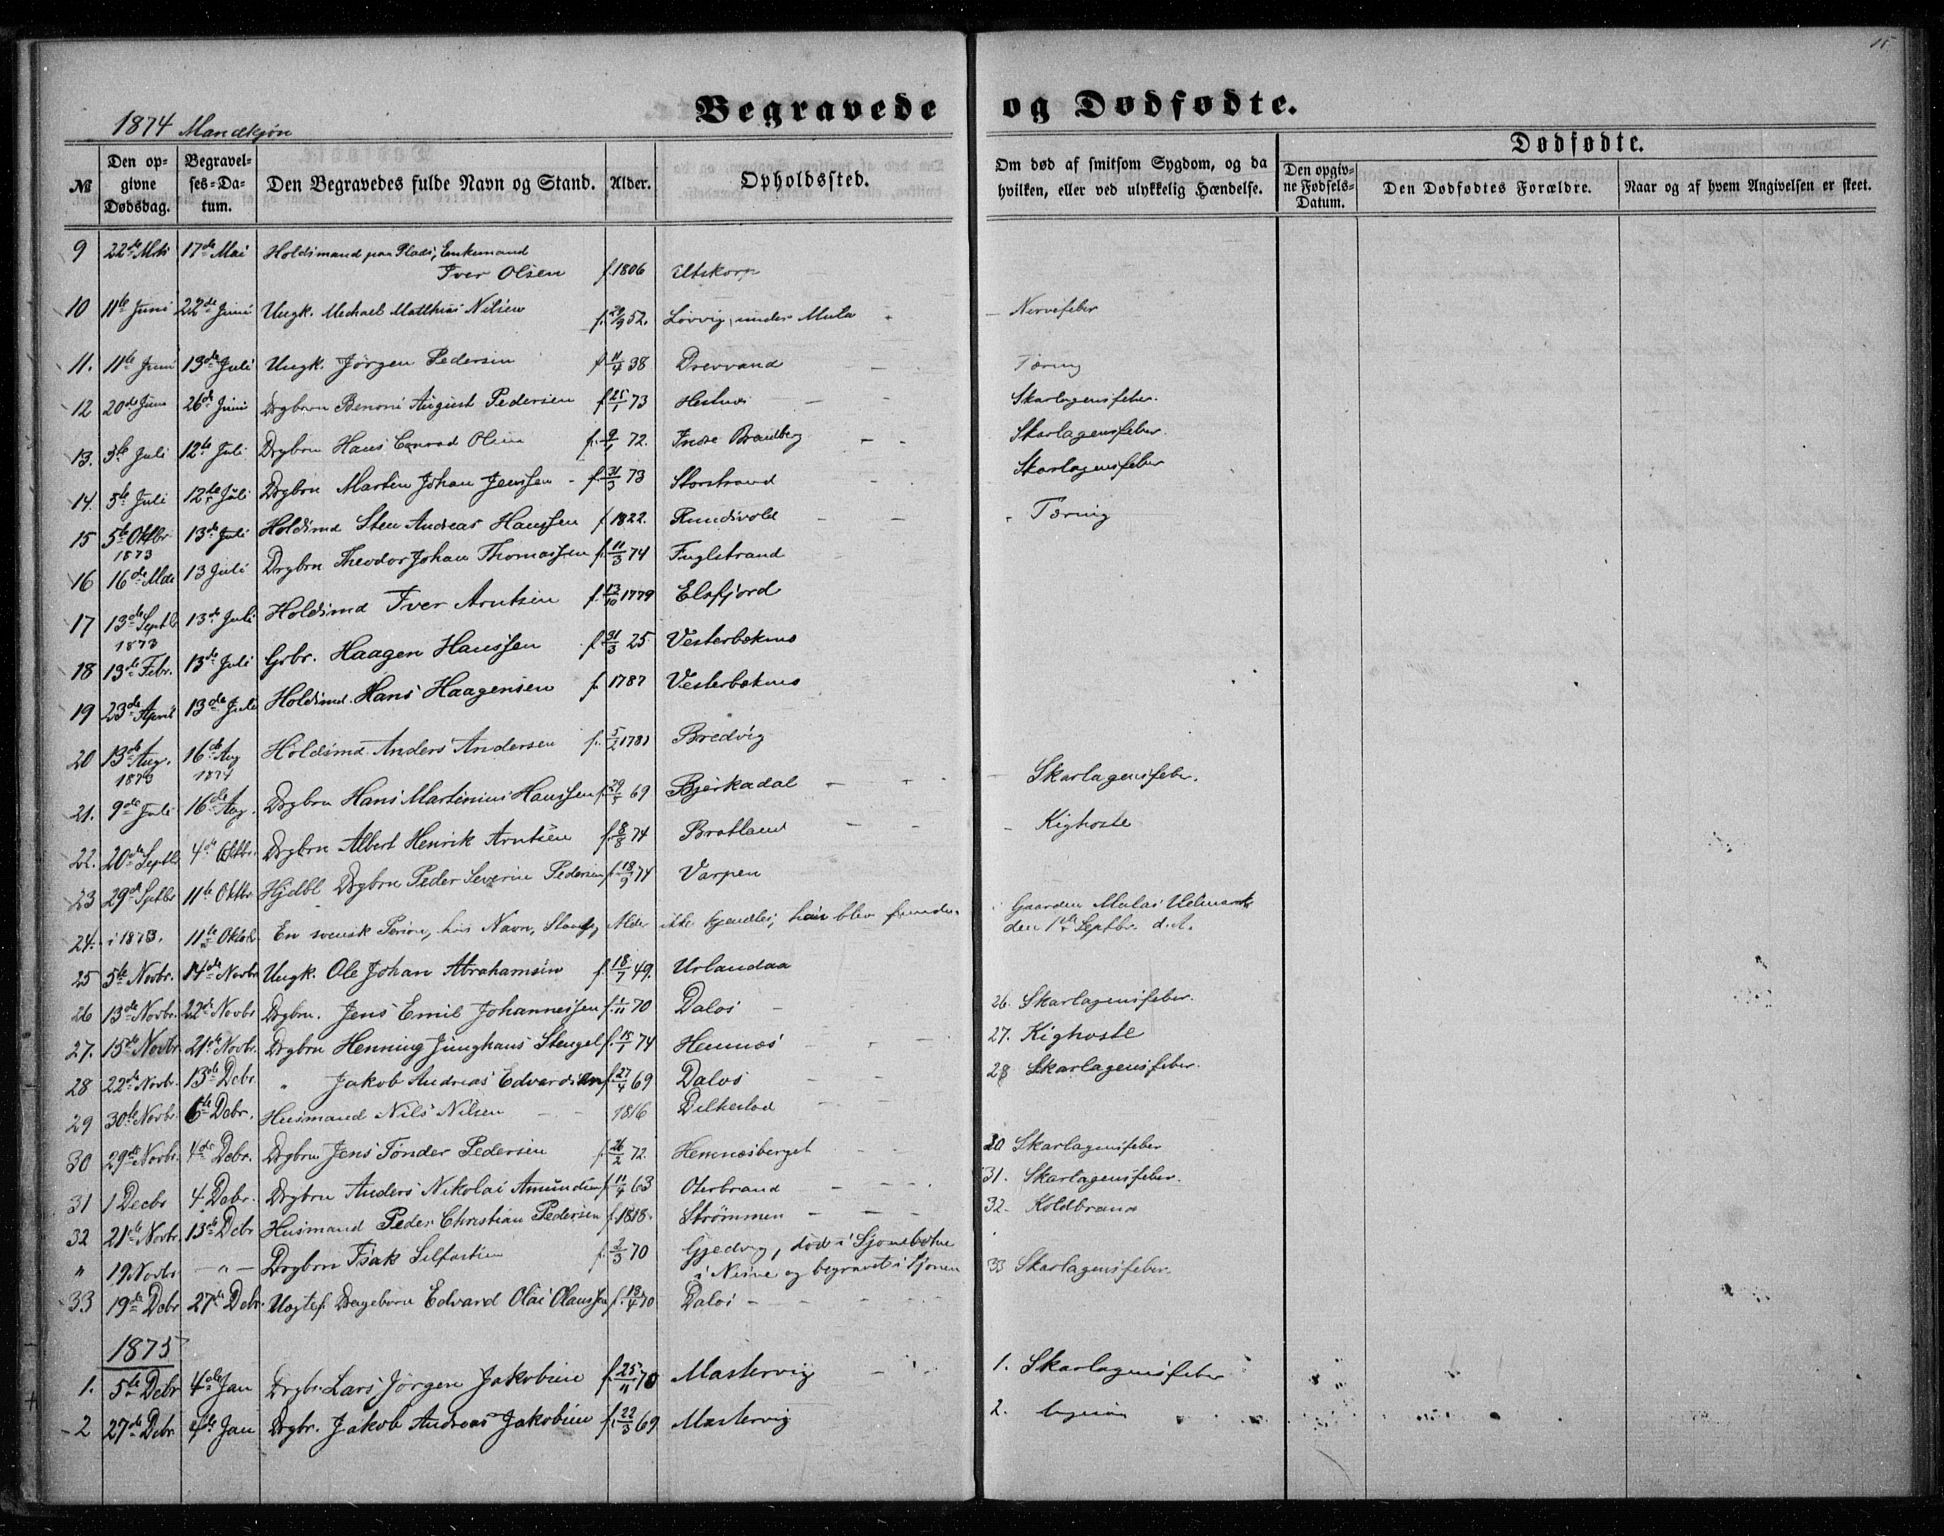 15
Begravede og Dødfødte.
1874 Mandkjøn
№
Den opgivne Dødsdag.
Begravelses-Datum.
Den Begravedes fulde Navn og Stand.
Alder.
Opholdssted.
Om død af smitsom Sygdom, og da hvilken, eller ved ulykkelig Hændelse.
Dødfødte.
Den opgivne Fødsels-Datum.
Den Dødfødtes Forældre.
Naar og af hvem Angivelsen er skeet.
9 22de 17de Mai Holdsmand paa Plads, Enkemand
Iver Olsen f. 1806 Utskorp
10 11te Juni 22de Juni Ungk. Michael Matthias Nilsen f. 29/9 52. Løvvig, under Mula Nervefeber
11. 11te Juni 13de Juli Ungk. Jørgen Pedersen f. 11/4 38 Drevvand Tæring
12 20de Juni 26de Juni Drgbrn Benoni August Pedersen f. 25/1 73 Skarlagensfeber.
13. 3die Juli 12te Juli Drgbrn Hans Conrad Olsen f. 72. Indre Brandberg Skarlagensfeber.
14. 5te Juli 12te Juli Drgbrn Marten Johan Jenssen f. 31/3 73 Storstrand Skarlagensfeber
15 5te Oktbr 1873 13de Juli Holdsmd Sten Andreas Hanssen f. 1822. Rundsvold Tæring
16 16de 13 Juli Drgbrn Theodor Johan Thomassen f. 11/3 74 Fuglstrand
17 13de Septb 1873 13de Juli Holdsmd Iver Arntsen f. 13/10 1779 Elsfjord
18 13de Febr. 13de Juli Grbr. Haagen Hanssen f. 31/3 25 Vesterbekmo
19 23de April 13de Juli Holdsmd. Hans Haagensen f. 1787 Vesterbekmo
20 13de Aug. 1873 16de Aug 1874 Holdsmd Anders Andersen f. 5/2 1781 Bredvig
21. 9de Juli 16de Aug. Drgbrn Hans Martinius Hanssen f. 69 Bjerkadal Skarlagensfeber.
22. 20de Septb 4de Oktbr. Drgbrn Albert Henrik Arntsen f. 8/8 74 Bratland Kighoste
23 29de Septbr 11te Oktbr Hjdbt Drgbrn Peder Severin Pedersen f. 18/9 74 Varpen
24. i 1873. 11te Oktbr. En svensk Person, hvis Navn, Stand og Alder ikke kjendtes, han blev funden Gaarden Mulas Udmark
den 1ste Septbr. d.A.
25 5te Novbr. 14de Novbr Ungk. Ole Johan Abrahamsen f. 18/7 49. Urlandaa
26 13de Novbr. 22de Novbr Drgbrn. Jens Emil Johannessen f. 1/11 70 Dalos 26. Skarlagensfeber.
27. 15de Novbr 21de Novbr. Drgbrn Henning Junghans Stengel f. 15/1 74 Hemnæs 27. Kighoste
28 22de Novbr. 13de Debr. " Jakob Andreas Edvardsen f. 27/4 69 Dalos 28 Skarlagensfeber.
29 30te Novbr. 6te Debr. Husmand Nils Nilsen 1816
30 29de Novbr. 4de Debr. Drgbrn Jens Tønder Pedersen f. 26/2 72. Hemnæsberget 30 Skarlagensfeber
31 1 Decbr 4 Debr. Drgbrn Anders Nikolai Amundsen f. 11/4 63 Oterbrand 31. Skarlagensfeber.
32 21de Novbr. 13de Debr Husmand Peder Christian Pedersen f. 1818. Strømmen 32. Koldbrand
" 19. Novbr — " — Drgbrn Isak f. 2/3 70 Gjedvig, død i Sjonebotne
i Nesne og begravet i Sjonen 33 Skarlagensfeber.
33 19de Debr 27de Debr. Uægtef. Drgebørn Edvard Olai Olaussen f. 13/4 70 Dalos
1875
1. 5te Debr 4de Jan Drgbr. Lars Jørgen Jakobsen f. 25/11 70 Mastervig 1. Skarlagensfeber
2 27de Debr. 4de Jan Drgbr. Jakob Andreas Jakobsen f. 22/3 69 Mastervig 2.